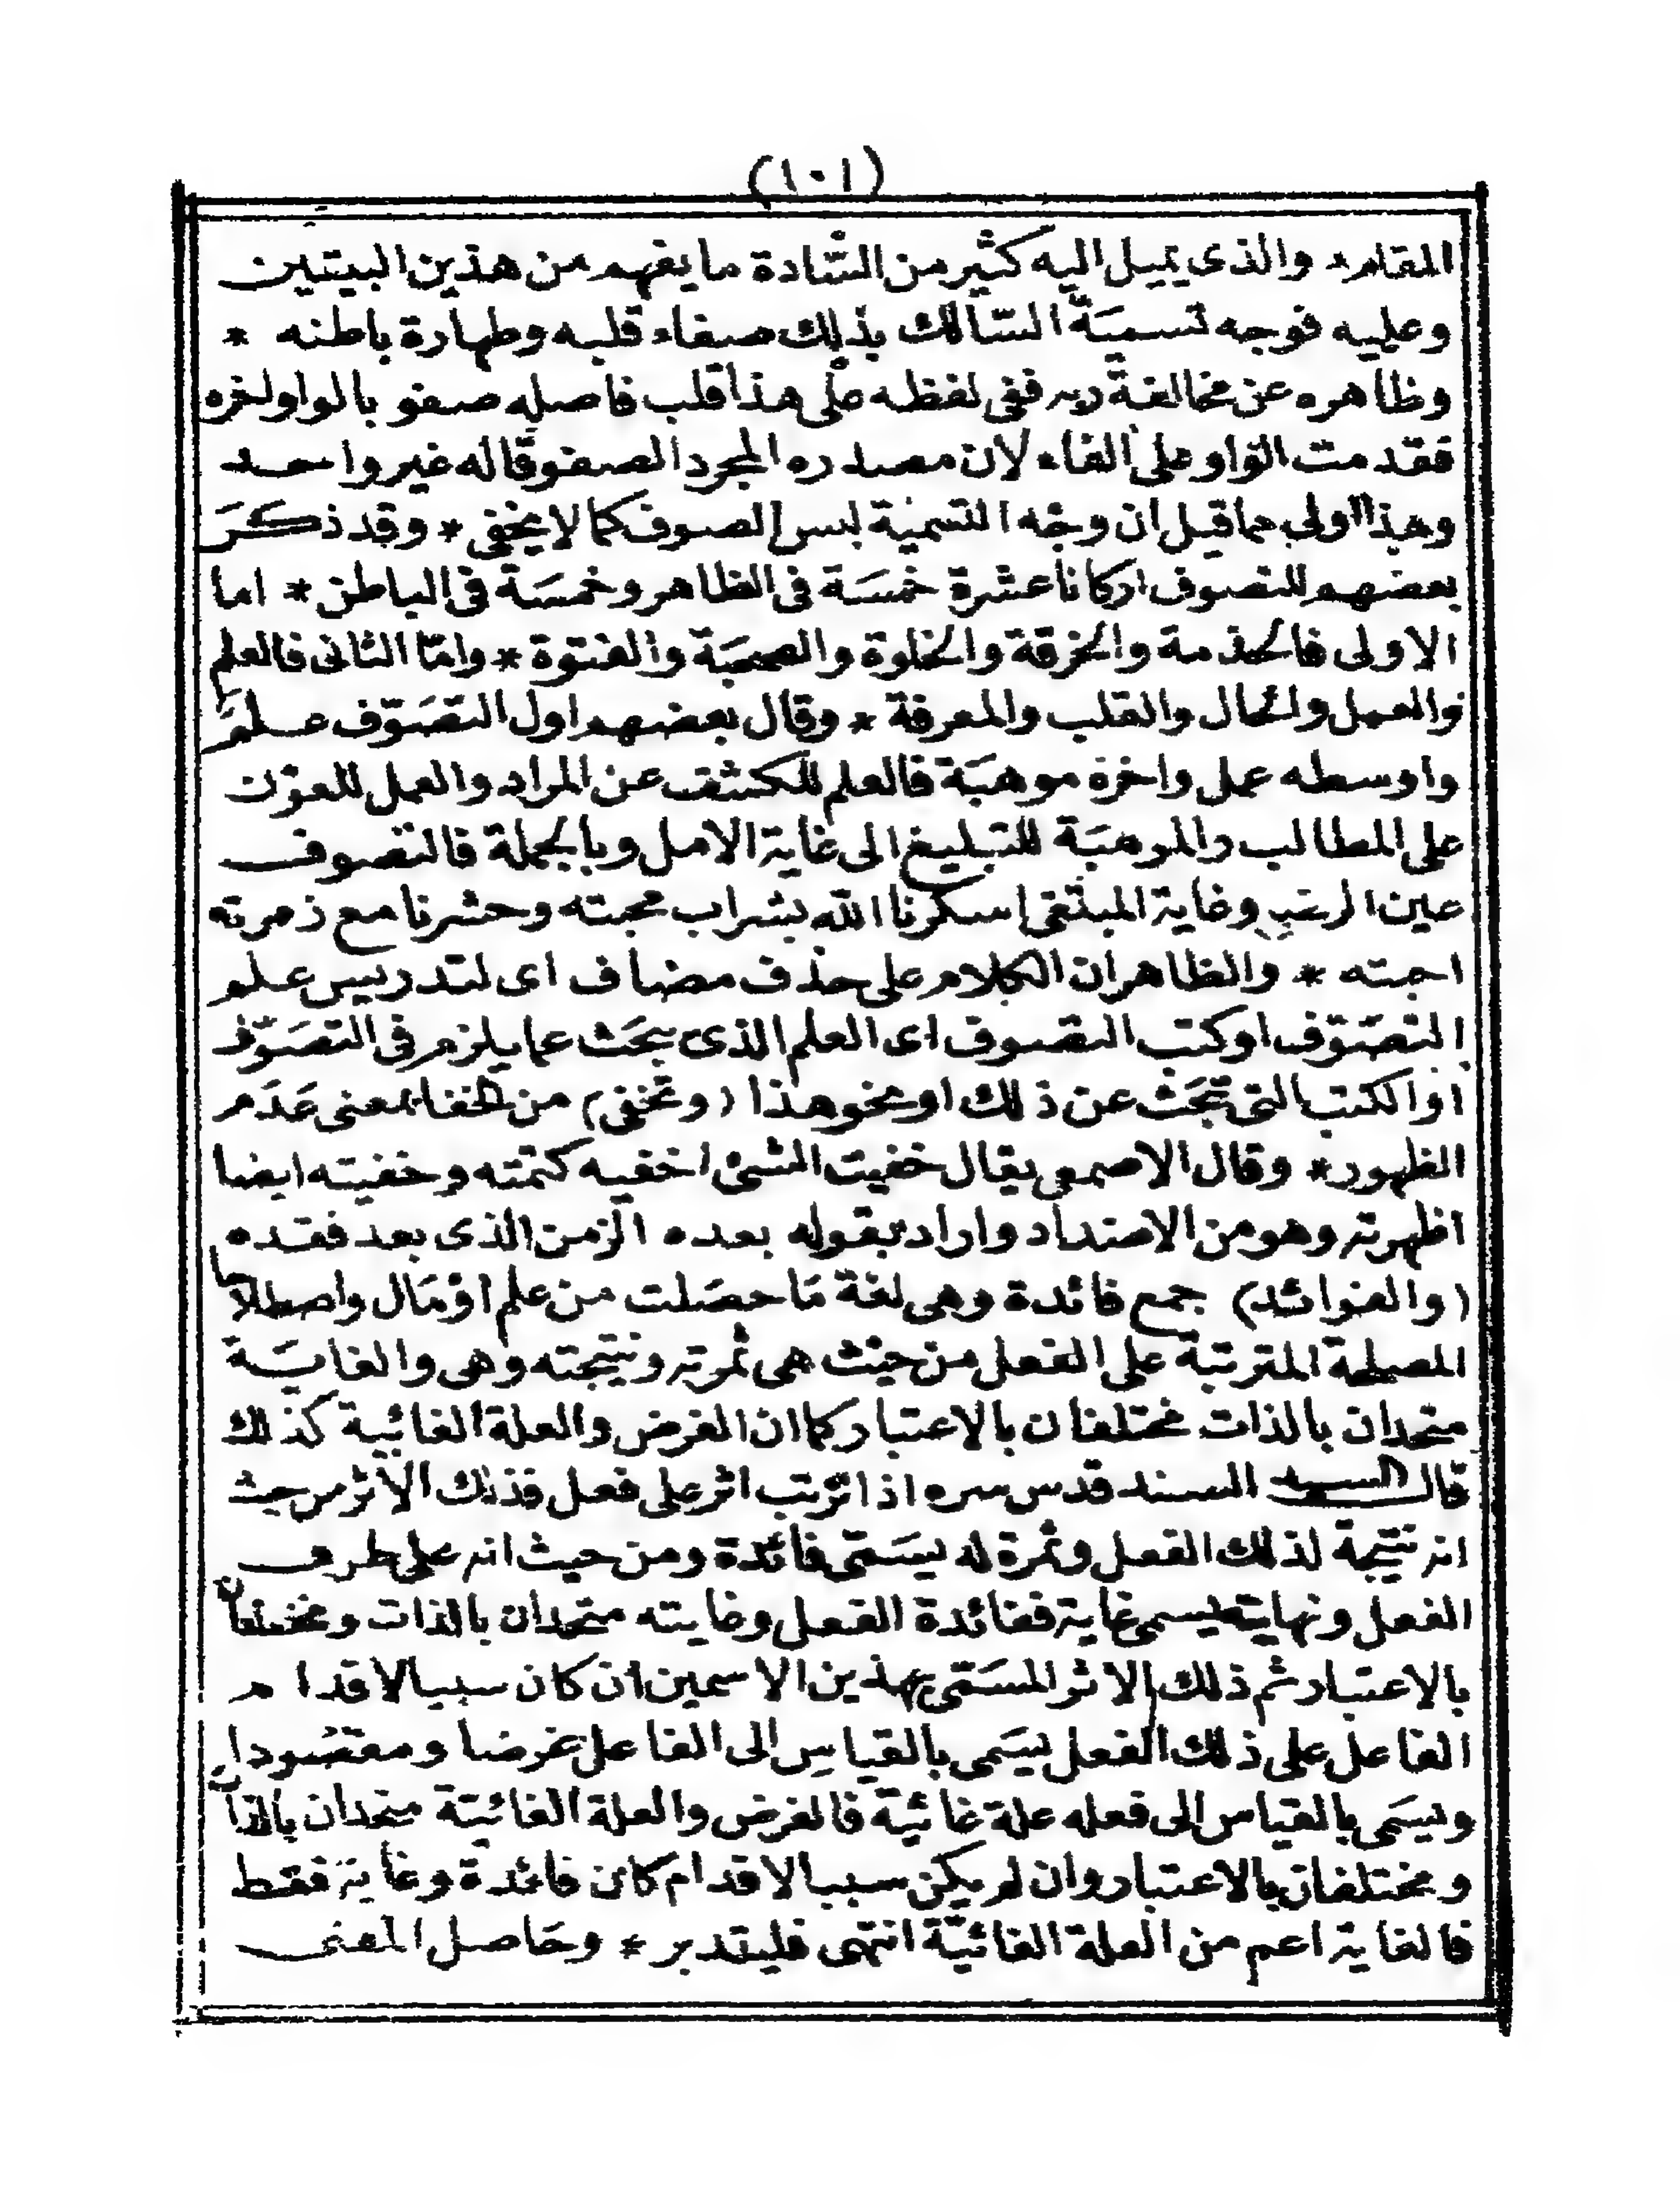 (١٠١)
المقام * والذى يميل اليه كثير من السّادة ما يفهم من هذين البيتين
وعليه فوجه تسميَة السّالك بذلك صفاء قلبه وطهارة باطنه *
وظاهره عن مخالفة ربه ففى لفظه على هذا قلب فاصله صفو بالواو لخره
فقدمت الواو على الفاء لان مصدره المجرد الصفو قاله غير واحد
وهذا اولى مما قيل ان وجه التسمية لبس الصوف كما لا يخفى * وقد ذكرَ
بعضهم للتصوف اركانا عشرة خمسَة فى الظاهر وخمسَة فى الباطن * اما
الاولى فالخدمة والخرقة والخلوة والصحبَة والفتوة * وامّا الثانى فالعلم
والعمل والحال والقلب والمعرفة * وقال بعضهم اول التصَوّف علم
واوسطه عمل واخره موهبَة فالعلم للكشف عن المراد والعمل للعون
على المطالب والموهبَة للتبليغ الى غاية الامل وبالجملة فالتصوف
عين وغاية المبتغى اسكرنا الله بشراب محبته وحشرنا مع زمرته
احبته * والظاهر ان الكلام على حذف مضاف اى لتدريس علم
التصَوّف او كتب التصوف اى العلم الذى يبحَث عما يلزم فى التصَوّف
او الكتب التى تبحَث عن ذلك او نحو هذا (وتخفى) من الخفا بمعنى عدَم
الظهور * وقال الاصمعى يقال خفيت الشئ اخفيه كتمته وخفيته ايضا
اظهرته وهو من الاضداد واراد بقوله بعده الزمن الذى بعد فقده
(والفوائد) جمع فائدة وهى لغة مَا حصَلت من علم اوْ مَال واصطلاحا
المصلحة المترتبة على الفعل من حيث هى ثمرته ونتيجته وهى والغايَة
متحدان بالذات مختلفان بالاعتبار كما ان الغرض والعلة الغائية كذلك
قال السيد السند قدس سره اذا ترتب اثر على فعل فذلك الاثر من حيث
انه نتيجة لذلك الفعل وثمرة له يسَمى فائدة ومن حيث انه على طرف
الفعل ونهايته يسمى غاية ففائدة الفعل وغايته متحدان بالذات ومختلفان
بالاعتبار ثم ذلك الاثر المسَمى بهذين الاسمين ان كان سببا لاقدام
الفاعل على ذلك الفعل يسَمى بالقياس الى الفاعل غرضا ومقصُودا
ويسَمى بالقياس الى فعله علة غائية فالغرض والعلة الغائيّة متحدان بالذات
ومختلفان بالاعتبار وان لم يكن سببا لاقدام كان فائدة وغاية فقط
فالغاية اعم من العلة الغائيّة انتهى فليتدبر * وحَاصل المعنى